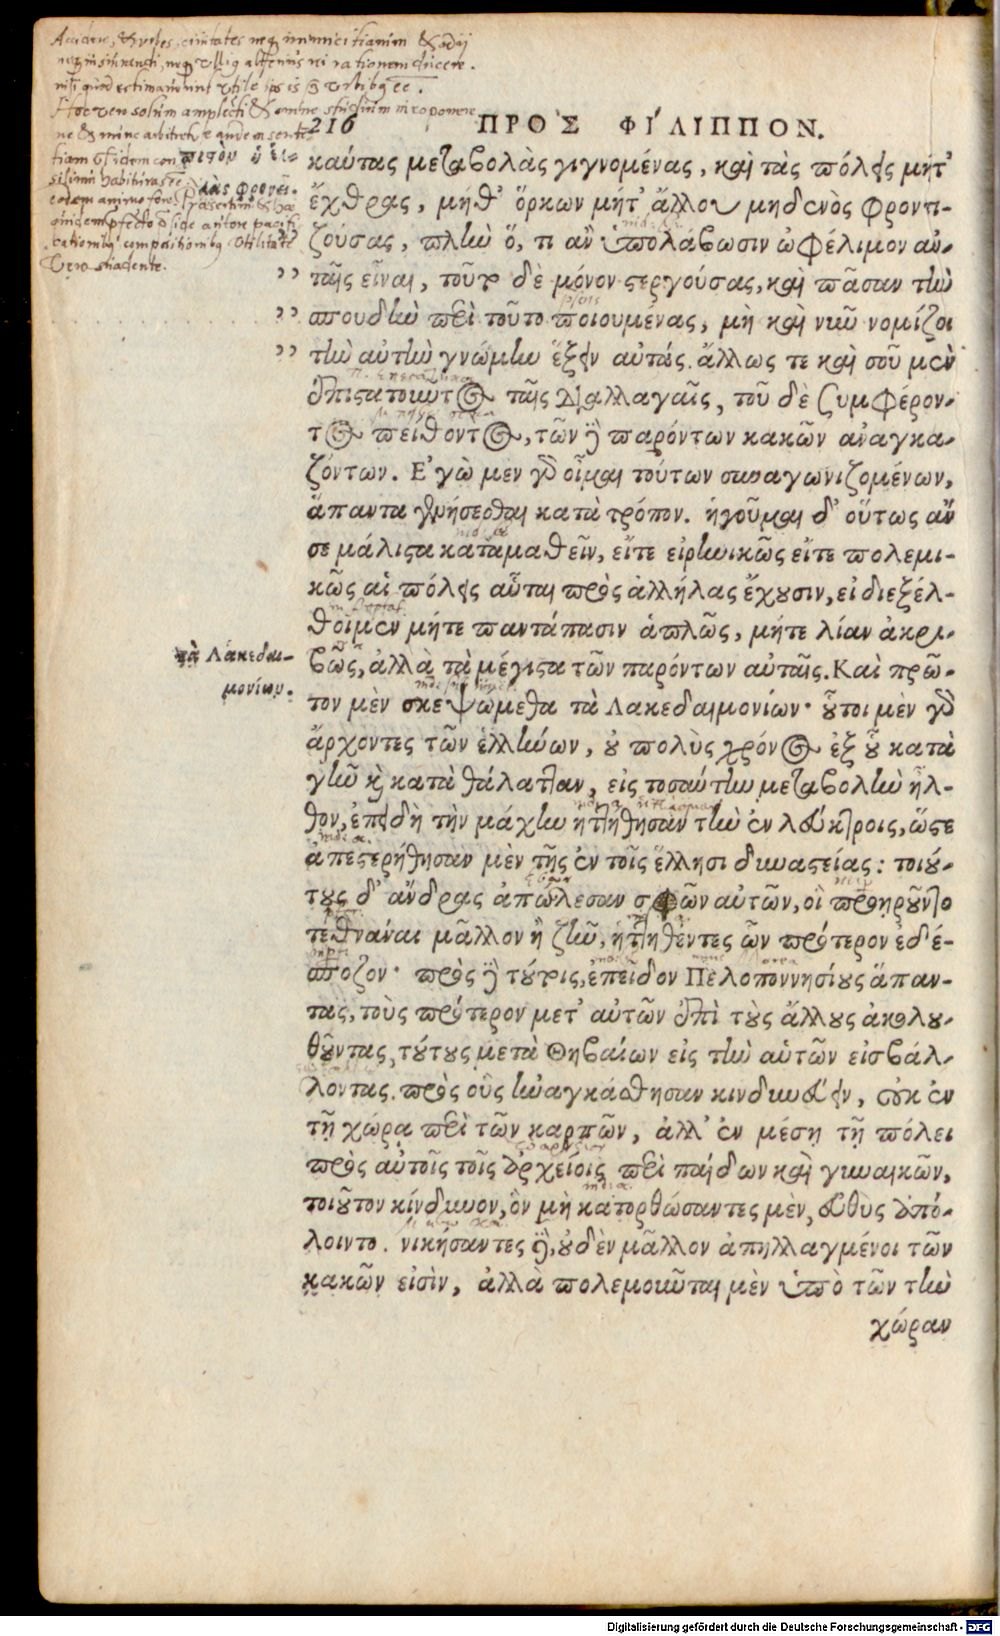 Accidere, & urbes, civitates neq; inimicitiarum & odij
neq; iusiurandi, neq; ullius alterius rei rationem ducere.
nisi quod existimaverint utile ipsis urbibus ee.
Hoc vero solum amplecti & omne studium in eo ponere
ne & nunc arbitretur eandem senten
216 ΠΡΟ῀Σ ΦΙ´ΛΙΠΠΟΝ.
καύτας μεταβολὰς γιγνομένας, καὶ τὰς πόλεις μήτ'
ἔχθρας, μήθ' ὅρκων μήτ' ἄλλου μηδενὸς φροντι-
ζούσας, πλὴν ὅ, τι ἂν ὑπολάβωσιν ὠφέλιμον αὐ-
ταῖς εἶναι, τοῦτο δὲ μόνον στεργούσας, καὶ πᾶσαν τὴν
σπουδὴν περὶ τοῦτο ποιουμένας, μὴ καὶ νῦν νομίζοι
τὴν αὐτὴν γνώμην ἕξειν αὐτάς. ἄλλως τε καὶ σοῦ μὲν
ἐπιστατοῦντος ταῖς διαλλαγαῖς, τοῦ δὲ συμφέρον-
τος πείθοντος, τῶν δὲ παρόντων κακῶν ἀναγκα-
ζόντων. Ε᾿γὼ μὲν γὰρ οἶμαι τούτων συναγωνιζομένων,
ἅπαντα γενήσεσθαι κατὰ τρόπον. ἡγοῦμαι δ' οὕτως ἄν
σε μάλιστα καταμαθεῖν, εἴτε εἰρηνικῶς εἴτε πολεμι-
κῶς αἱ πόλεις αὗται πρὸς ἀλλήλας ἔχουσιν, εἰ διεξέλ-
θοιμεν μήτε παντάπασιν ἁπλῶς, μήτε λίαν ἀκρι-
τὰ Λακεδαι-
μονίων.
βῶς, ἀλλὰ τὰ μέγιστα τῶν παρόντων αὐταῖς. Καὶ πρῶ-
τον μὲν σκεψώμεθα τὰ Λακεδαιμονίων· οὗτοι μὲν γὰρ
ἄρχοντες τῶν ἑλλήνων, οὐ πολὺς χρόνος ἐξ οὗ κατὰ
γῆν καὶ κατὰ θάλατταν, εἰς τοσαύτην μεταβολὴν ἦλ-
θον, ἐπειδὴ τὴν μάχην ἡττήθησαν τὴν ἐν λεύκτροις, ὥστε
ἀπεστερήθησαν μὲν τῆς ἐν τοῖς ἕλλησι δυναστείας: τοιού-
τους δ' ἄνδρας ἀπώλεσαν σφῶν αὐτῶν, οἳ προῃροῦντο
τεθνάναι μᾶλλον ἢ ζῆν, ἡττηθέντες ὧν πρότερον ἐδέ-
σποζον· πρὸς δὲ τούτοις, ἐπεῖδον Πελοποννησίους ἅπαν-
τας, τοὺς πρότερον μετ' αὐτῶν ἐπὶ τοὺς ἄλλους ἀκολου-
θοῦντας, τούτους μετὰ Θηβαίων εἰς τὴν αὑτῶν εἰσβάλ-
λοντας. πρὸς οὓς ἠναγκάσθησαν κινδυνεύειν, οὐκ ἐν
τῇ χώρᾳ περὶ τῶν καρπῶν, ἀλλ' ἐν μέσῃ τῇ πόλει
πρὸς αὐτοῖς τοῖς ἀρχείοις περὶ παίδων καὶ γυναικῶν,
τοιοῦτον κίνδυνον, ὃν μὴ κατορθώσαντες μὲν, εὐθὺς ἀπό-
λοιντο. νικήσαντες δὲ, οὐδὲν μᾶλλον ἀπηλλαγμένοι τῶν
κακῶν εἰσὶν, ἀλλὰ πολεμοῦνται μὲν ὑπὸ τῶν τὴν
χώραν
Digitalisierung gefördert durch die Deutsche Forschungsgemeinschaft - DFG